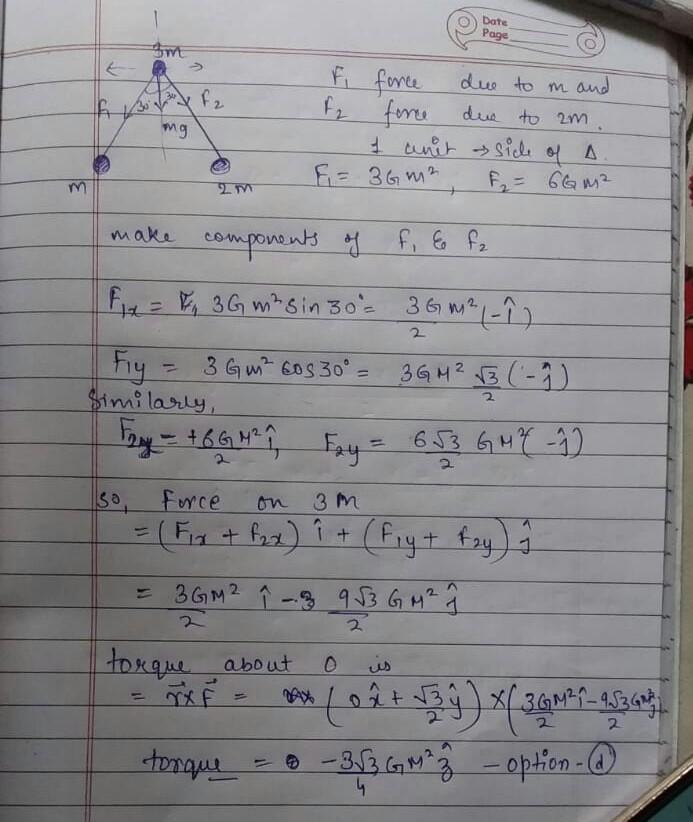 Date
Page
3m
F₁ 30° 30° F₂
mg
m 2m
F₁ force due to m and
F₂ force due to 2m.
1 unit → side of Δ.
F₁ = 3Gm², F₂ = 6Gm²
make components of F₁ & F₂
F₁x = 3Gm² sin 30° = 3GM²/2 (-î)
F₁y = 3Gm² cos30° = 3GM² √3/2 (-ĵ)
Similarly,
F₂x = +6GM²/2 î, F₂y = 6√3/2 GM² (-ĵ)
so, Force on 3M
= (F₁x + F₂x) î + (F₁y + F₂y) ĵ
= 3GM²/2 î - 9√3/2 GM² ĵ
torque about O is
= r⃗×F⃗ = (0x̂ + √3/2 ŷ) × (3GM²/2 î - 9√3GM²/2 ĵ)
torque = -3√3/4 GM² ẑ - option-(d)